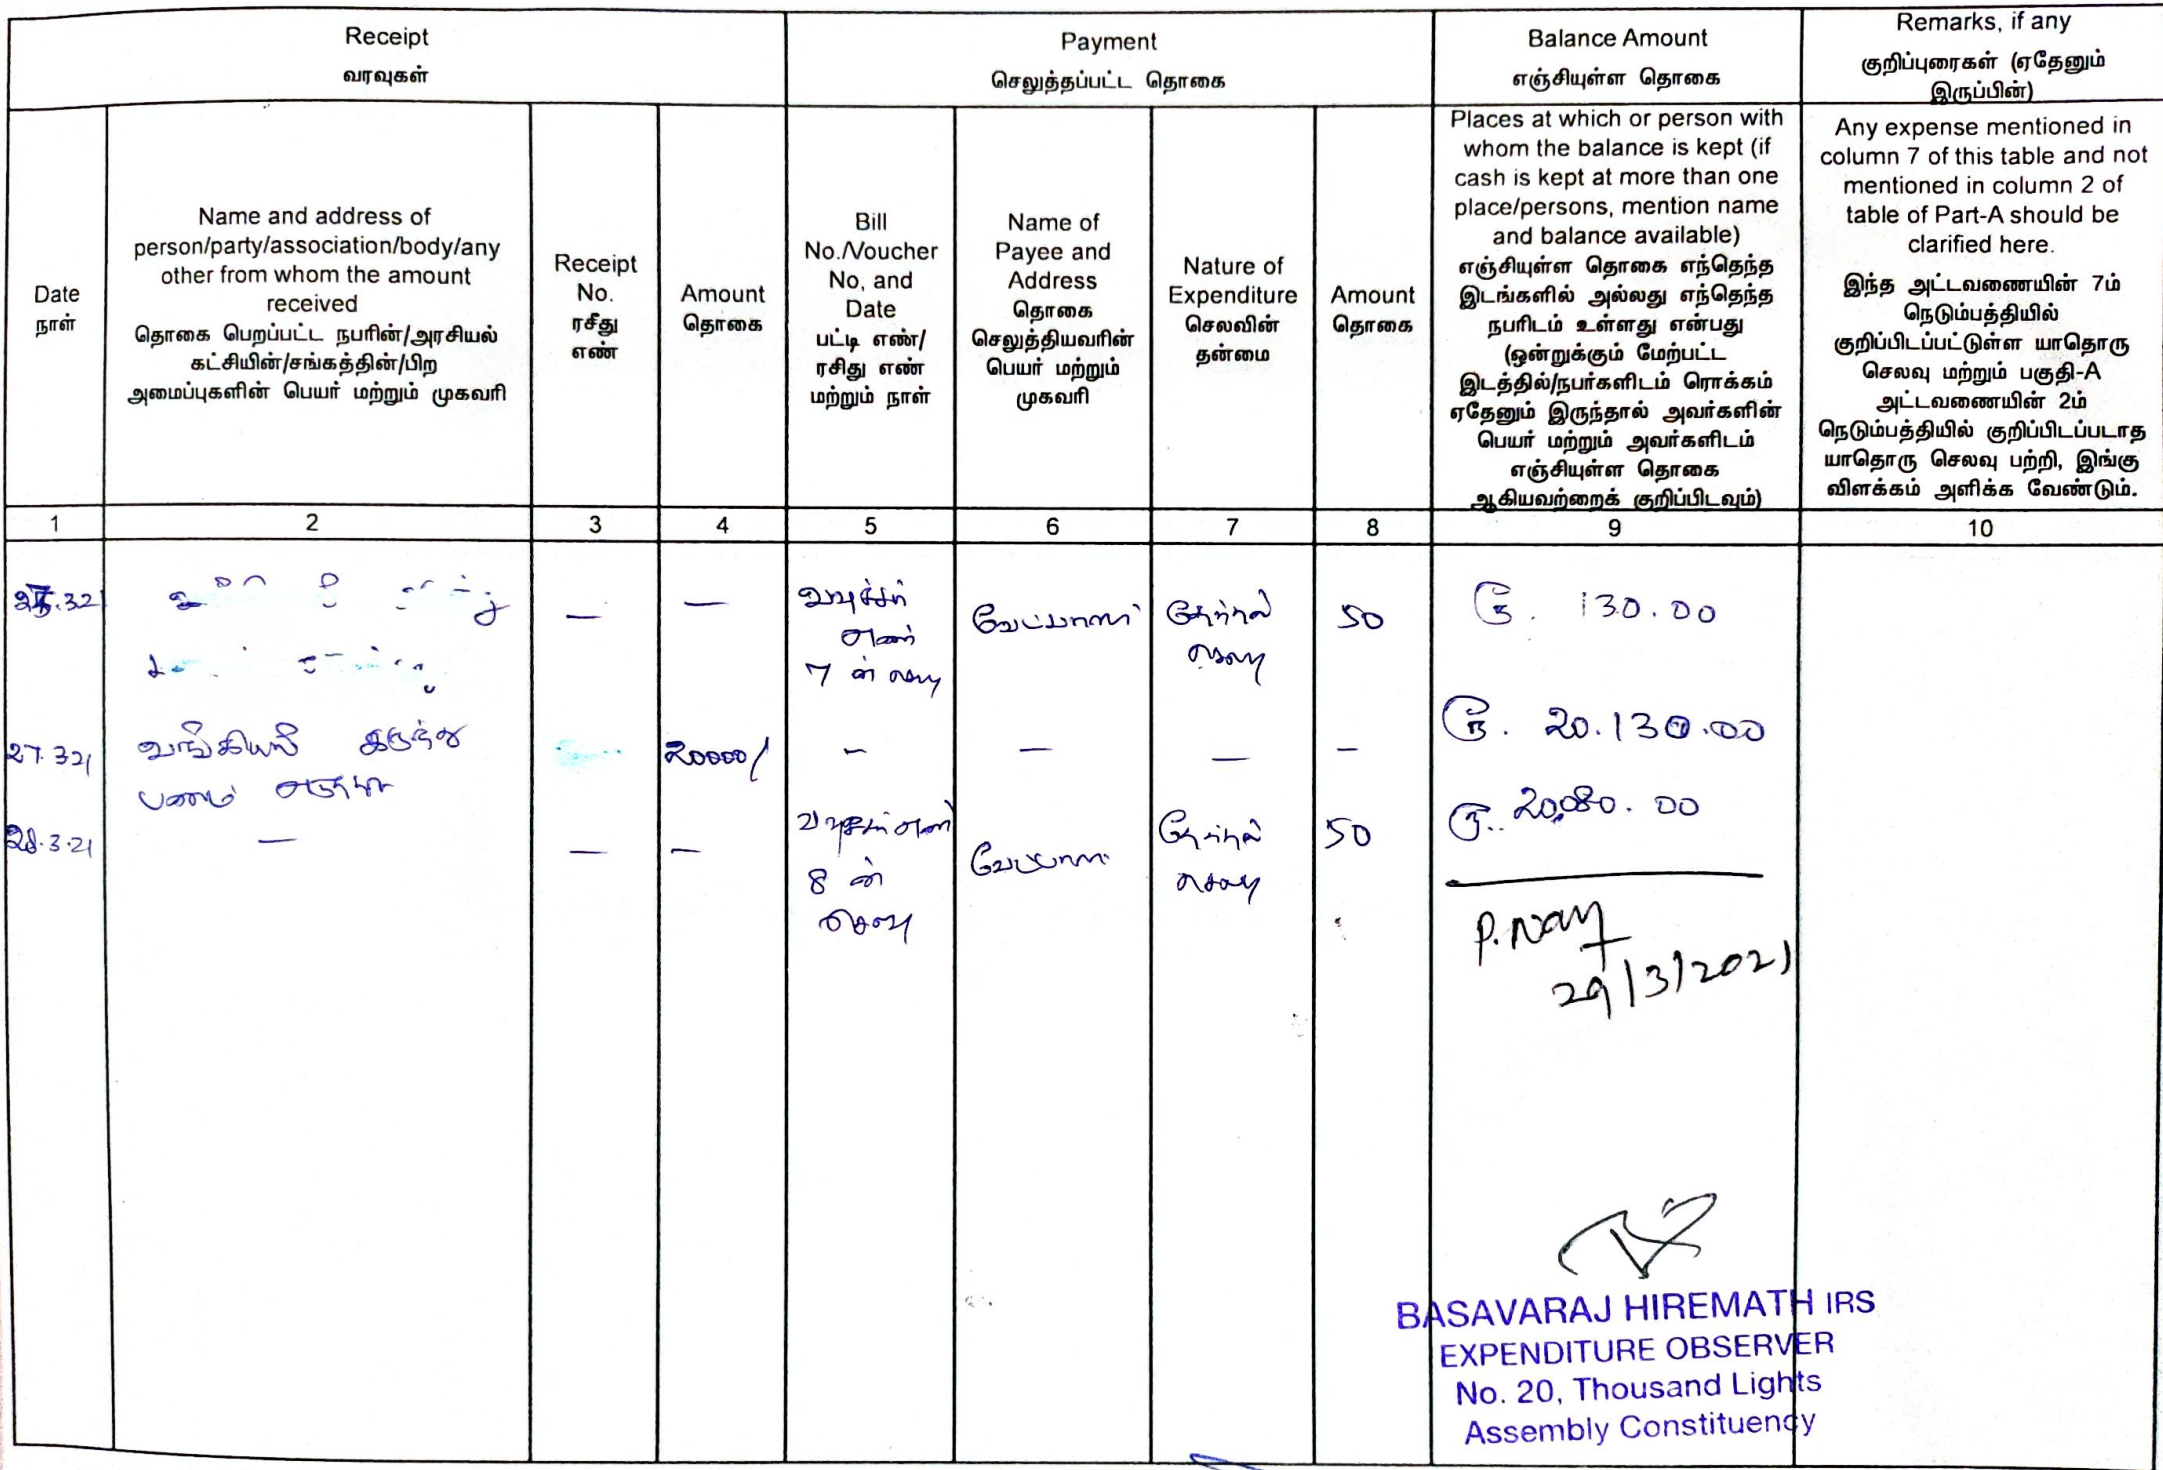 Receipt
வரவுகள்
Payment
செலுத்தப்பட்ட தொகை
Balance Amount
எஞ்சியுள்ள தொகை
Remarks, if any
குறிப்புரைகள் (ஏதேனும்
இருப்பின்)
Date
நாள்
Name and address of
person/party/association/body/any
other from whom the amount
received
தொகை பெறப்பட்ட நபரின்/அரசியல்
கட்சியின்/சங்கத்தின்/பிற
அமைப்புகளின் பெயர் மற்றும் முகவரி
Receipt
No.
ரசீது
எண்
Amount
தொகை
Bill
No./Voucher
No, and
Date
பட்டி எண்/
ரசிது எண்
மற்றும் நாள்
Name of
Payee and
Address
தொகை
செலுத்தியவரின்
பெயர் மற்றும்
முகவரி
Nature of
Expenditure
செலவின்
தன்மை
Amount
தொகை
Places at which or person with
whom the balance is kept (if
cash is kept at more than one
place/persons, mention name
and balance available)
எஞ்சியுள்ள தொகை எந்தெந்த
இடங்களில் அல்லது எந்தெந்த
நபரிடம் உள்ளது என்பது
(ஒன்றுக்கும் மேற்பட்ட
இடத்தில்/நபர்களிடம் ரொக்கம்
ஏதேனும் இருந்தால் அவர்களின்
பெயர் மற்றும் அவர்களிடம்
எஞ்சியுள்ள தொகை
ஆகியவற்றைக் குறிப்பிடவும்)
Any expense mentioned in
column 7 of this table and not
mentioned in column 2 of
table of Part-A should be
clarified here.
இந்த அட்டவணையின் 7ம்
நெடும்பத்தியில்
குறிப்பிடப்பட்டுள்ள யாதொரு
செலவு மற்றும் பகுதி-A
அட்டவணையின் 2ம்
நெடும்பத்தியில் குறிப்பிடப்படாத
யாதொரு செலவு பற்றி, இங்கு
விளக்கம் அளிக்க வேண்டும்.
1 2 3 4 5 6 7 8 9 10
— — வவுச்சர்
எண்
7 ன் செலவு
வேட்பாளர்
தேர்தல்
செலவு
50
ரூ. 130.00
27.321
வங்கியில் இருந்து
பணம்
20000/
– — — —
ரூ. 20.130.00
28.3.21
— — —
வவுச்சர் எண்
8 ன்
செலவு
வேட்பாளர்
தேர்தல்
செலவு
50
ரூ. 20,080.00
29/3/2021
BASAVARAJ HIREMATH IRS
EXPENDITURE OBSERVER
No. 20, Thousand Lights
Assembly Constituency